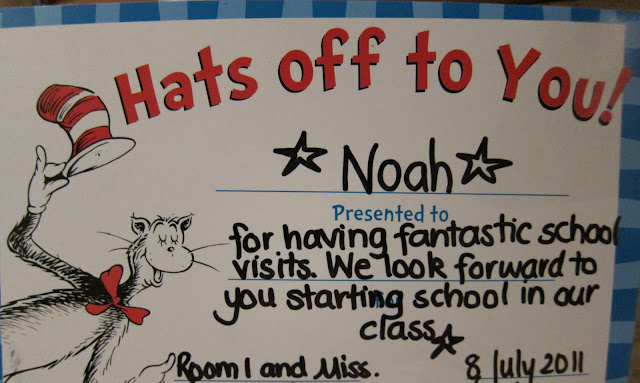 Hats off to You!
Noah
Presented to
for having fantastic school
visits. We look forward to
you starting school in our
class
Room 1 and Miss. 8 July 2011